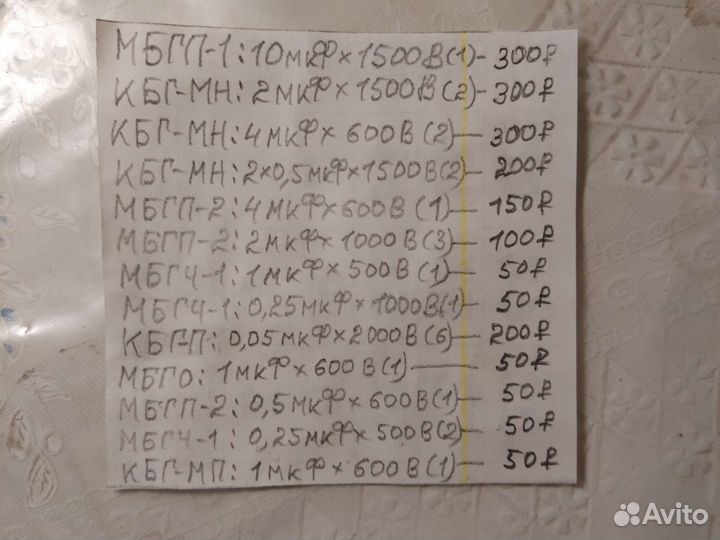 МБГП-1: 10мкФ × 1500В(1)- 300₽
КБГ-МН: 2мкФ × 1500В(2)- 300₽
КБГ-МН: 4мкФ × 600В(2)— 300₽
КБГ-МН: 2×0,5мкФ×1500В(2)- 200₽
МБГП-2: 4мкФ×600В(1)— 150₽
МБГП-2: 2мкФ×1000В(3)— 100₽
МБГЧ-1: 1мкФ×500В(1)— 50₽
МБГЧ-1: 0,25мкФ×1000В(1)- 50₽
КБГП: 0,05мкФ×2000В(6)— 200₽
МБГО: 1мкФ×600В(1)— 50₽
МБГП-2: 0,5мкФ×600В(1)— 50₽
МБГЧ-1: 0,25мкФ×500В(2)— 50₽
КБГ-МП: 1мкФ×600В(1)— 50₽
Avito